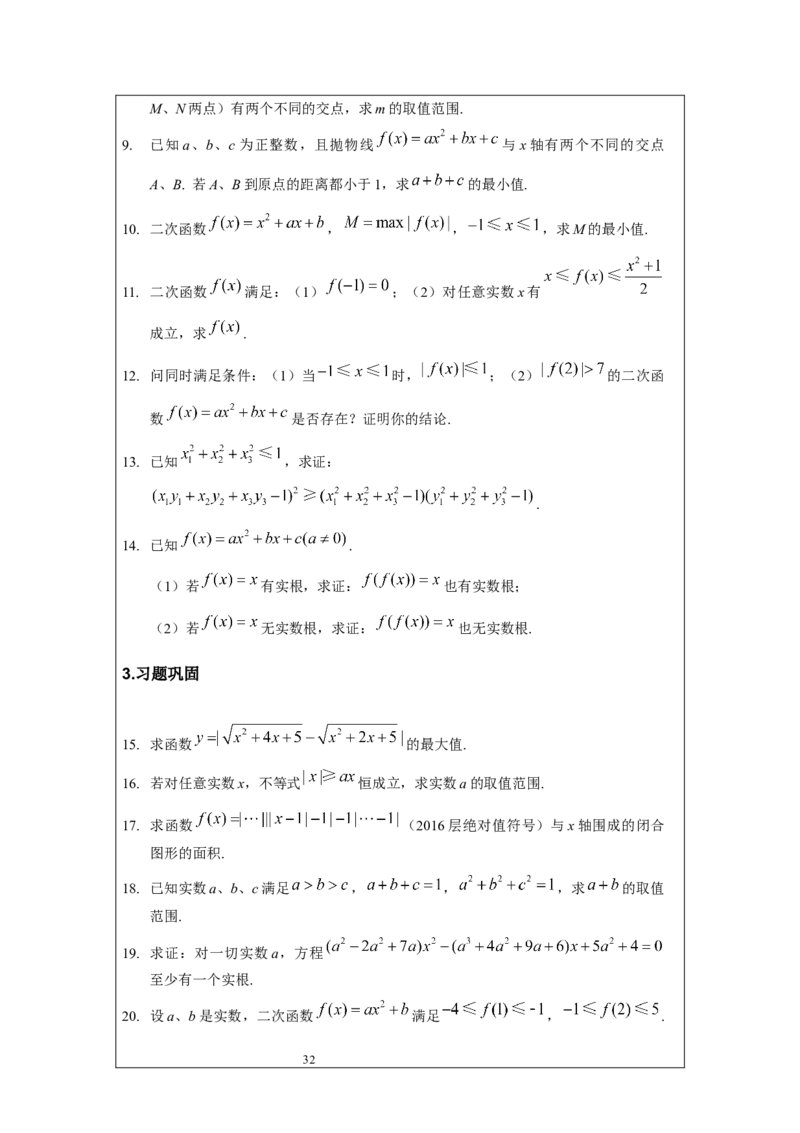 M、N两点）有两个不同的交点，求m的取值范围.
9. 已知a、b、c 为正整数，且抛物线 f(x)=ax²+bx+c 与 x 轴有两个不同的交点
A、B. 若A、B到原点的距离都小于1，求 a+b+c 的最小值.
10. 二次函数 f(x)=x²+ax+b ， M=max|f(x)| ，-1≤x≤1，求M的最小值.
11. 二次函数 f(x) 满足：（1） f(-1)=0 ；（2）对任意实数x有 x≤f(x)≤(x²+1)/2
成立，求 f(x) .
12. 问同时满足条件：（1）当 -1≤x≤1 时，|f(x)|≤1 ；（2）|f(2)|>7 的二次函
数 f(x)=ax²+bx+c 是否存在？证明你的结论.
13. 已知 x₁²+x₂²+x₃²≤1 ，求证：
(x₁y₁+x₂y₂+x₃y₃-1)²≥(x₁²+x₂²+x₃²-1)(y₁²+y₂²+y₃²-1) .
14. 已知 f(x)=ax²+bx+c(a≠0) .
（1）若 f(x)=x 有实根，求证： f(f(x))=x 也有实数根；
（2）若 f(x)=x 无实数根，求证： f(f(x))=x 也无实数根.
3.习题巩固
15. 求函数 y=|√(x²+4x+5)-√(x²+2x+5)| 的最大值.
16. 若对任意实数x，不等式 |x|≥ax 恒成立，求实数a的取值范围.
17. 求函数 f(x)=|…|||x-1|-1|-1|…-1| （2016层绝对值符号）与x轴围成的闭合
图形的面积.
18. 已知实数a、b、c满足 a>b>c ， a+b+c=1 ， a²+b²+c²=1 ，求 a+b 的取值
范围.
19. 求证：对一切实数a，方程 (a²-2a²+7a)x²-(a³+4a²+9a+6)x+5a²+4=0
至少有一个实根.
20. 设a、b是实数，二次函数 f(x)=ax²+b 满足 -4≤f(1)≤-1 ， -1≤f(2)≤5 .
32